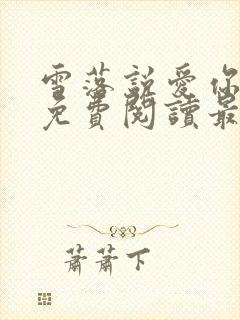 雪落説愛你
免費閱讀最
蕭蕭下